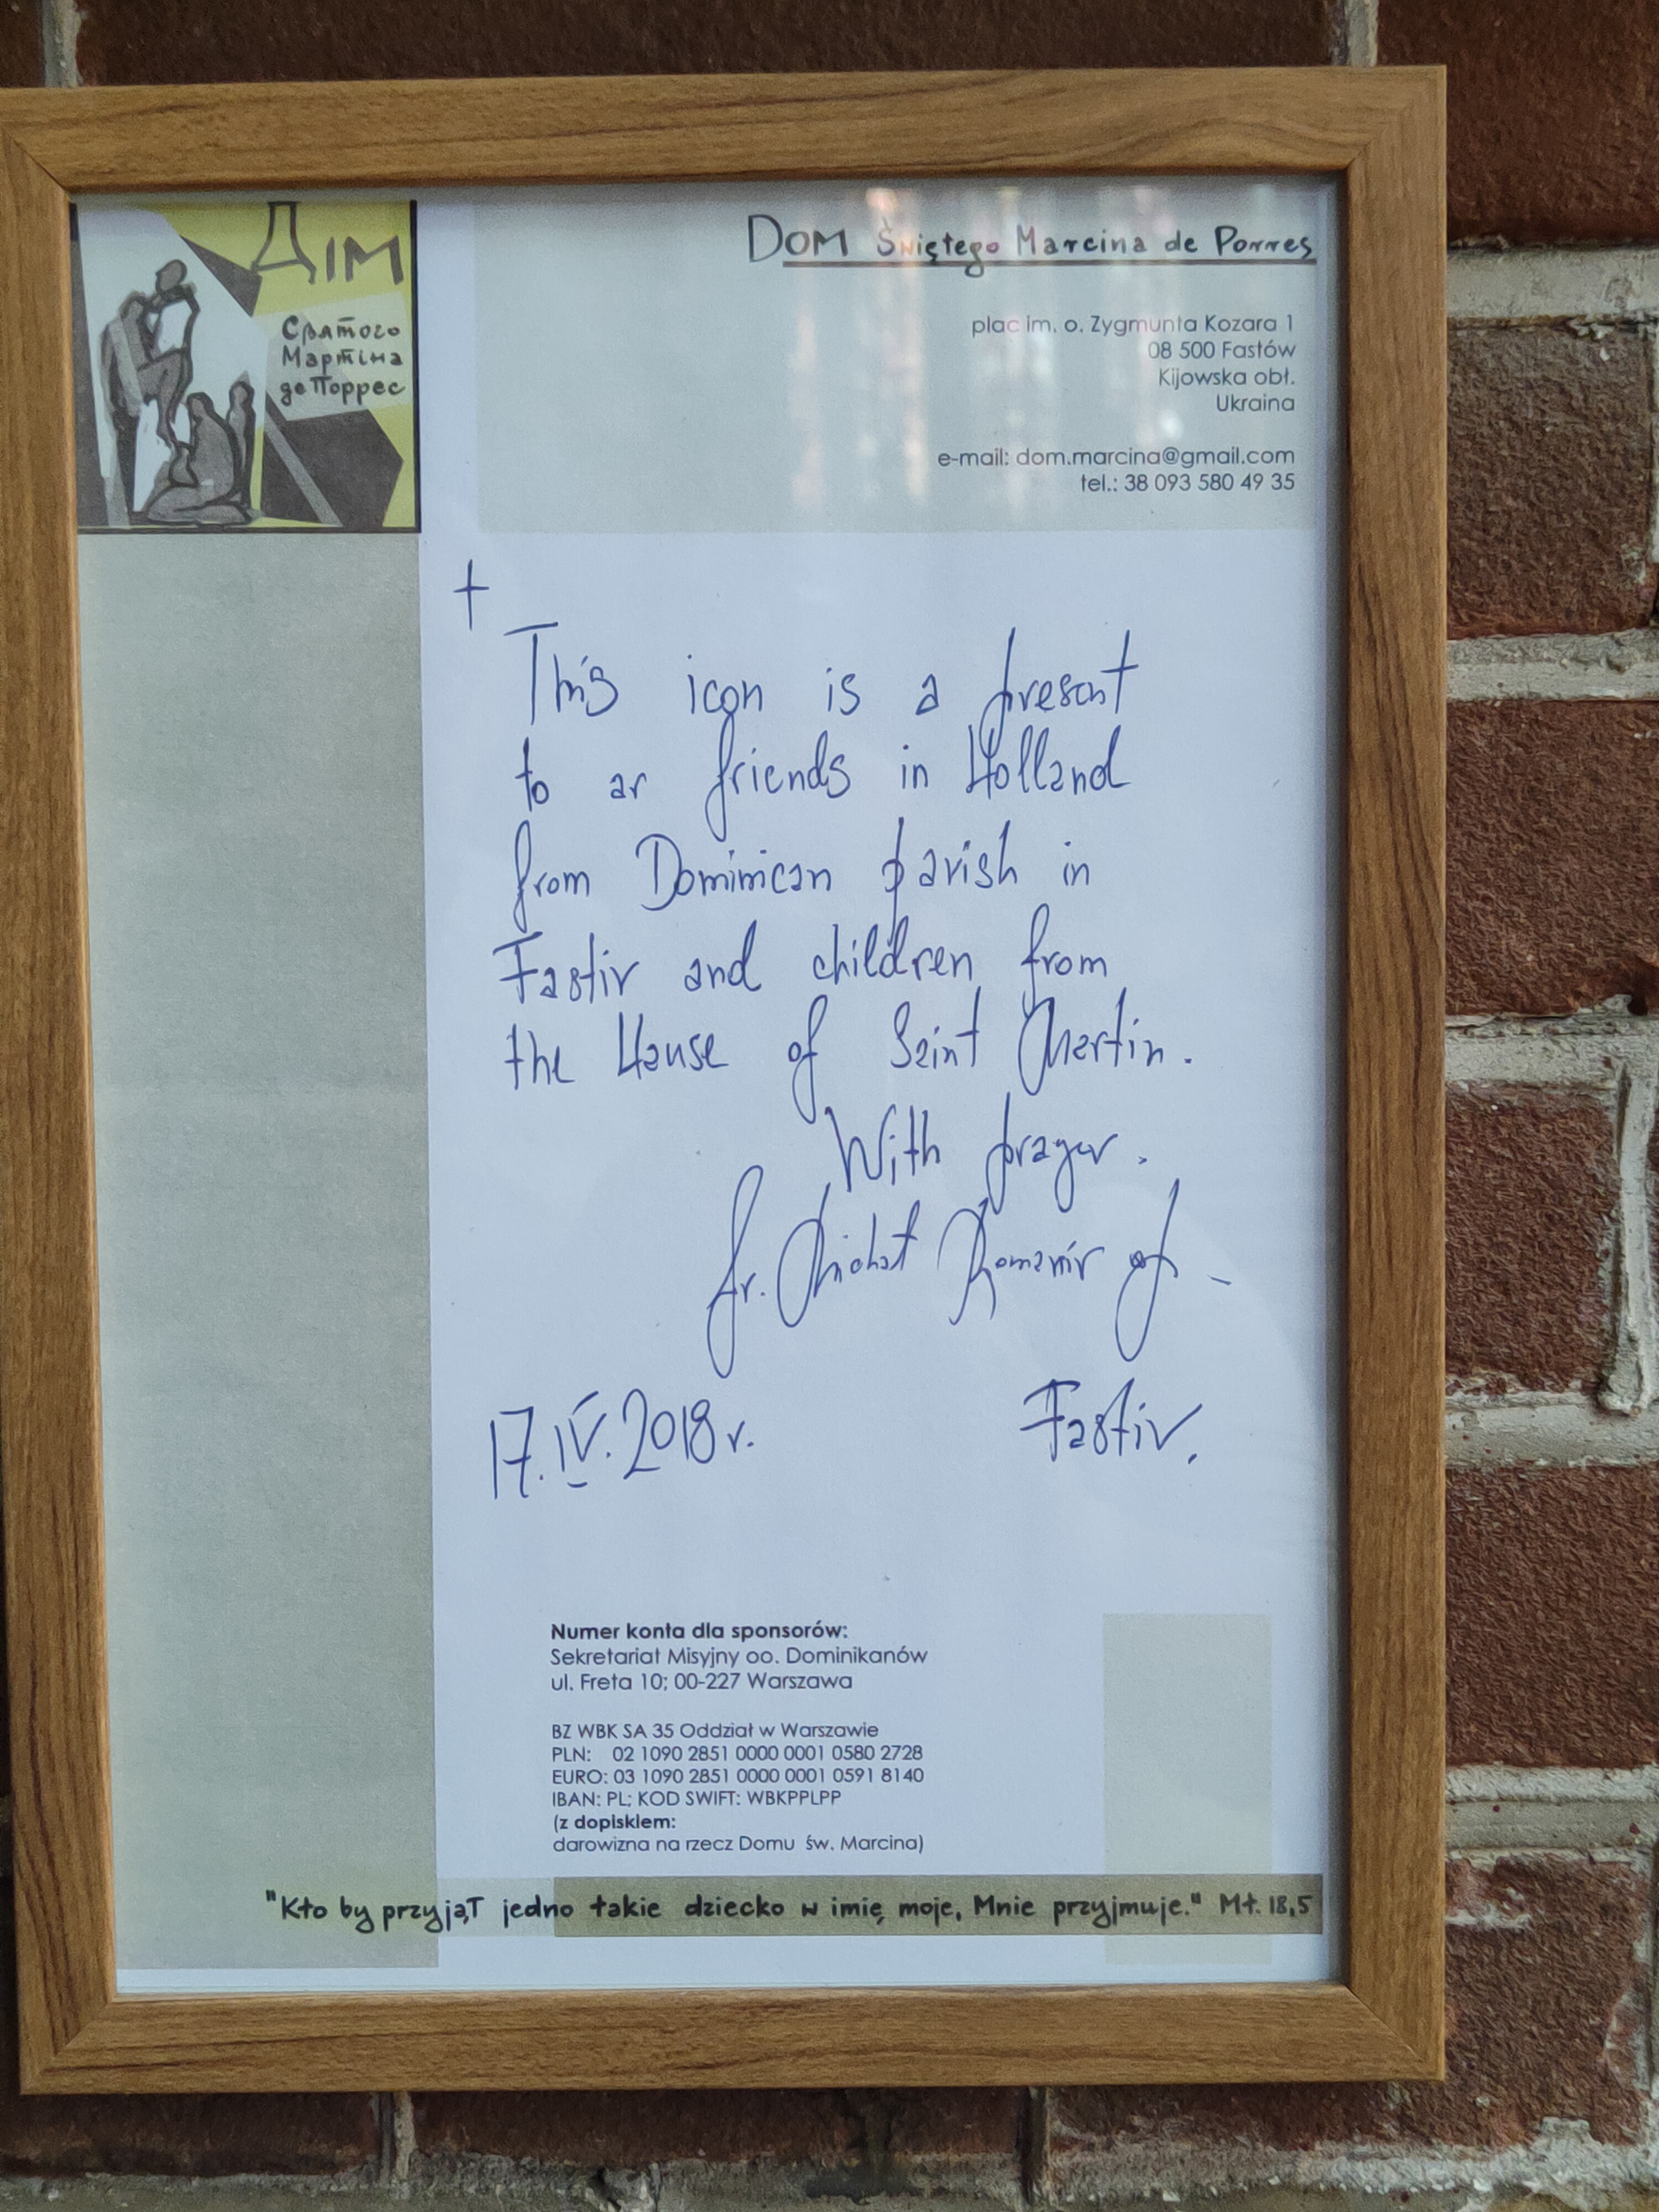 Дім
Святого
Мартіна
де Поррес
Dom Świętego Marcina de Porres
plac im. o. Zygmunta Kozara 1
08 500 Fastów
Kijowska obł.
Ukraina
e-mail: dom.marcina@gmail.com
tel.: 38 093 580 49 35
†
This icon is a present
to ar friends in Holland
from Dominican parish in
Fastiv and children from
the House of Saint Martin.
With prayer.
fr. Michał Romaniv op
17.IV.2018 r.
Fastiv.
Numer konta dla sponsorów:
Sekretariat Misyjny oo. Dominikanów
ul. Freta 10; 00-227 Warszawa
BZ WBK SA 35 Oddział w Warszawie
PLN: 02 1090 2851 0000 0001 0580 2728
EURO: 03 1090 2851 0000 0001 0591 8140
IBAN: PL; KOD SWIFT: WBKPPLPP
(z dopiskiem:
darowizna na rzecz Domu św. Marcina)
"Kto by przyjął jedno takie dziecko w imię moje, Mnie przyjmuje." Mt. 18,5